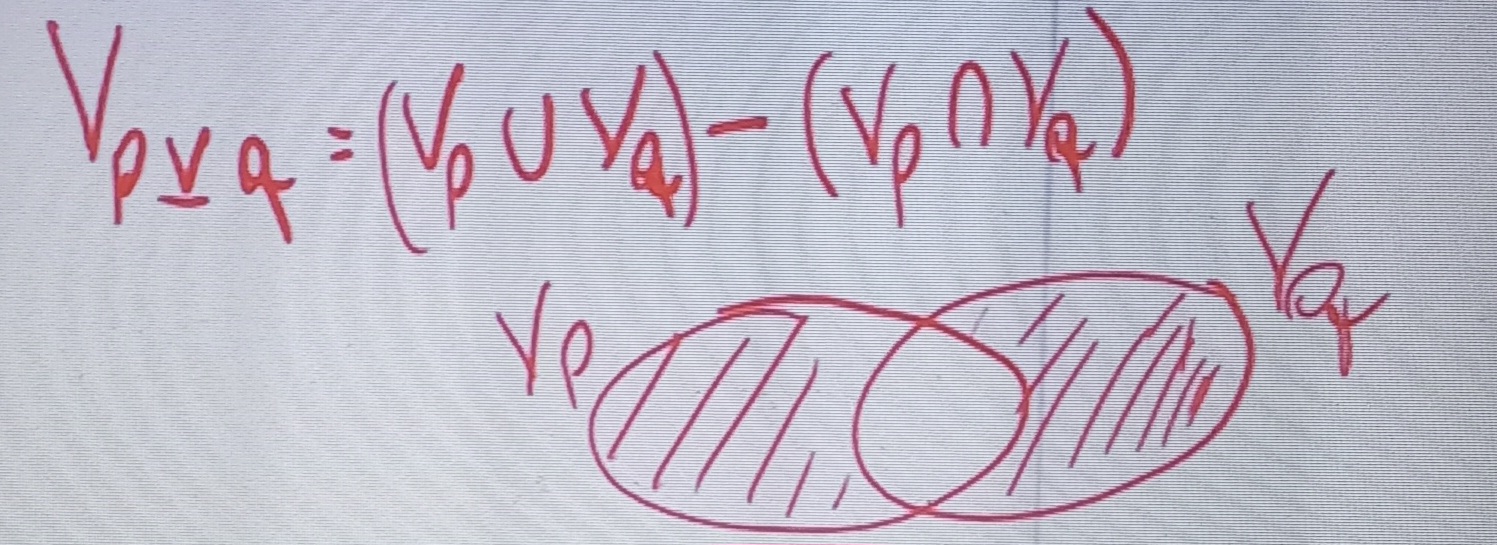 V_{p ⊻ q} = (V_p ∪ V_q) − (V_p ∩ V_q)
V_p V_q